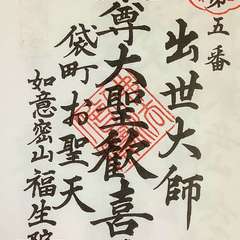 第五番
出世大師
尊大聖歓喜
袋町お聖天
如意密山福生院